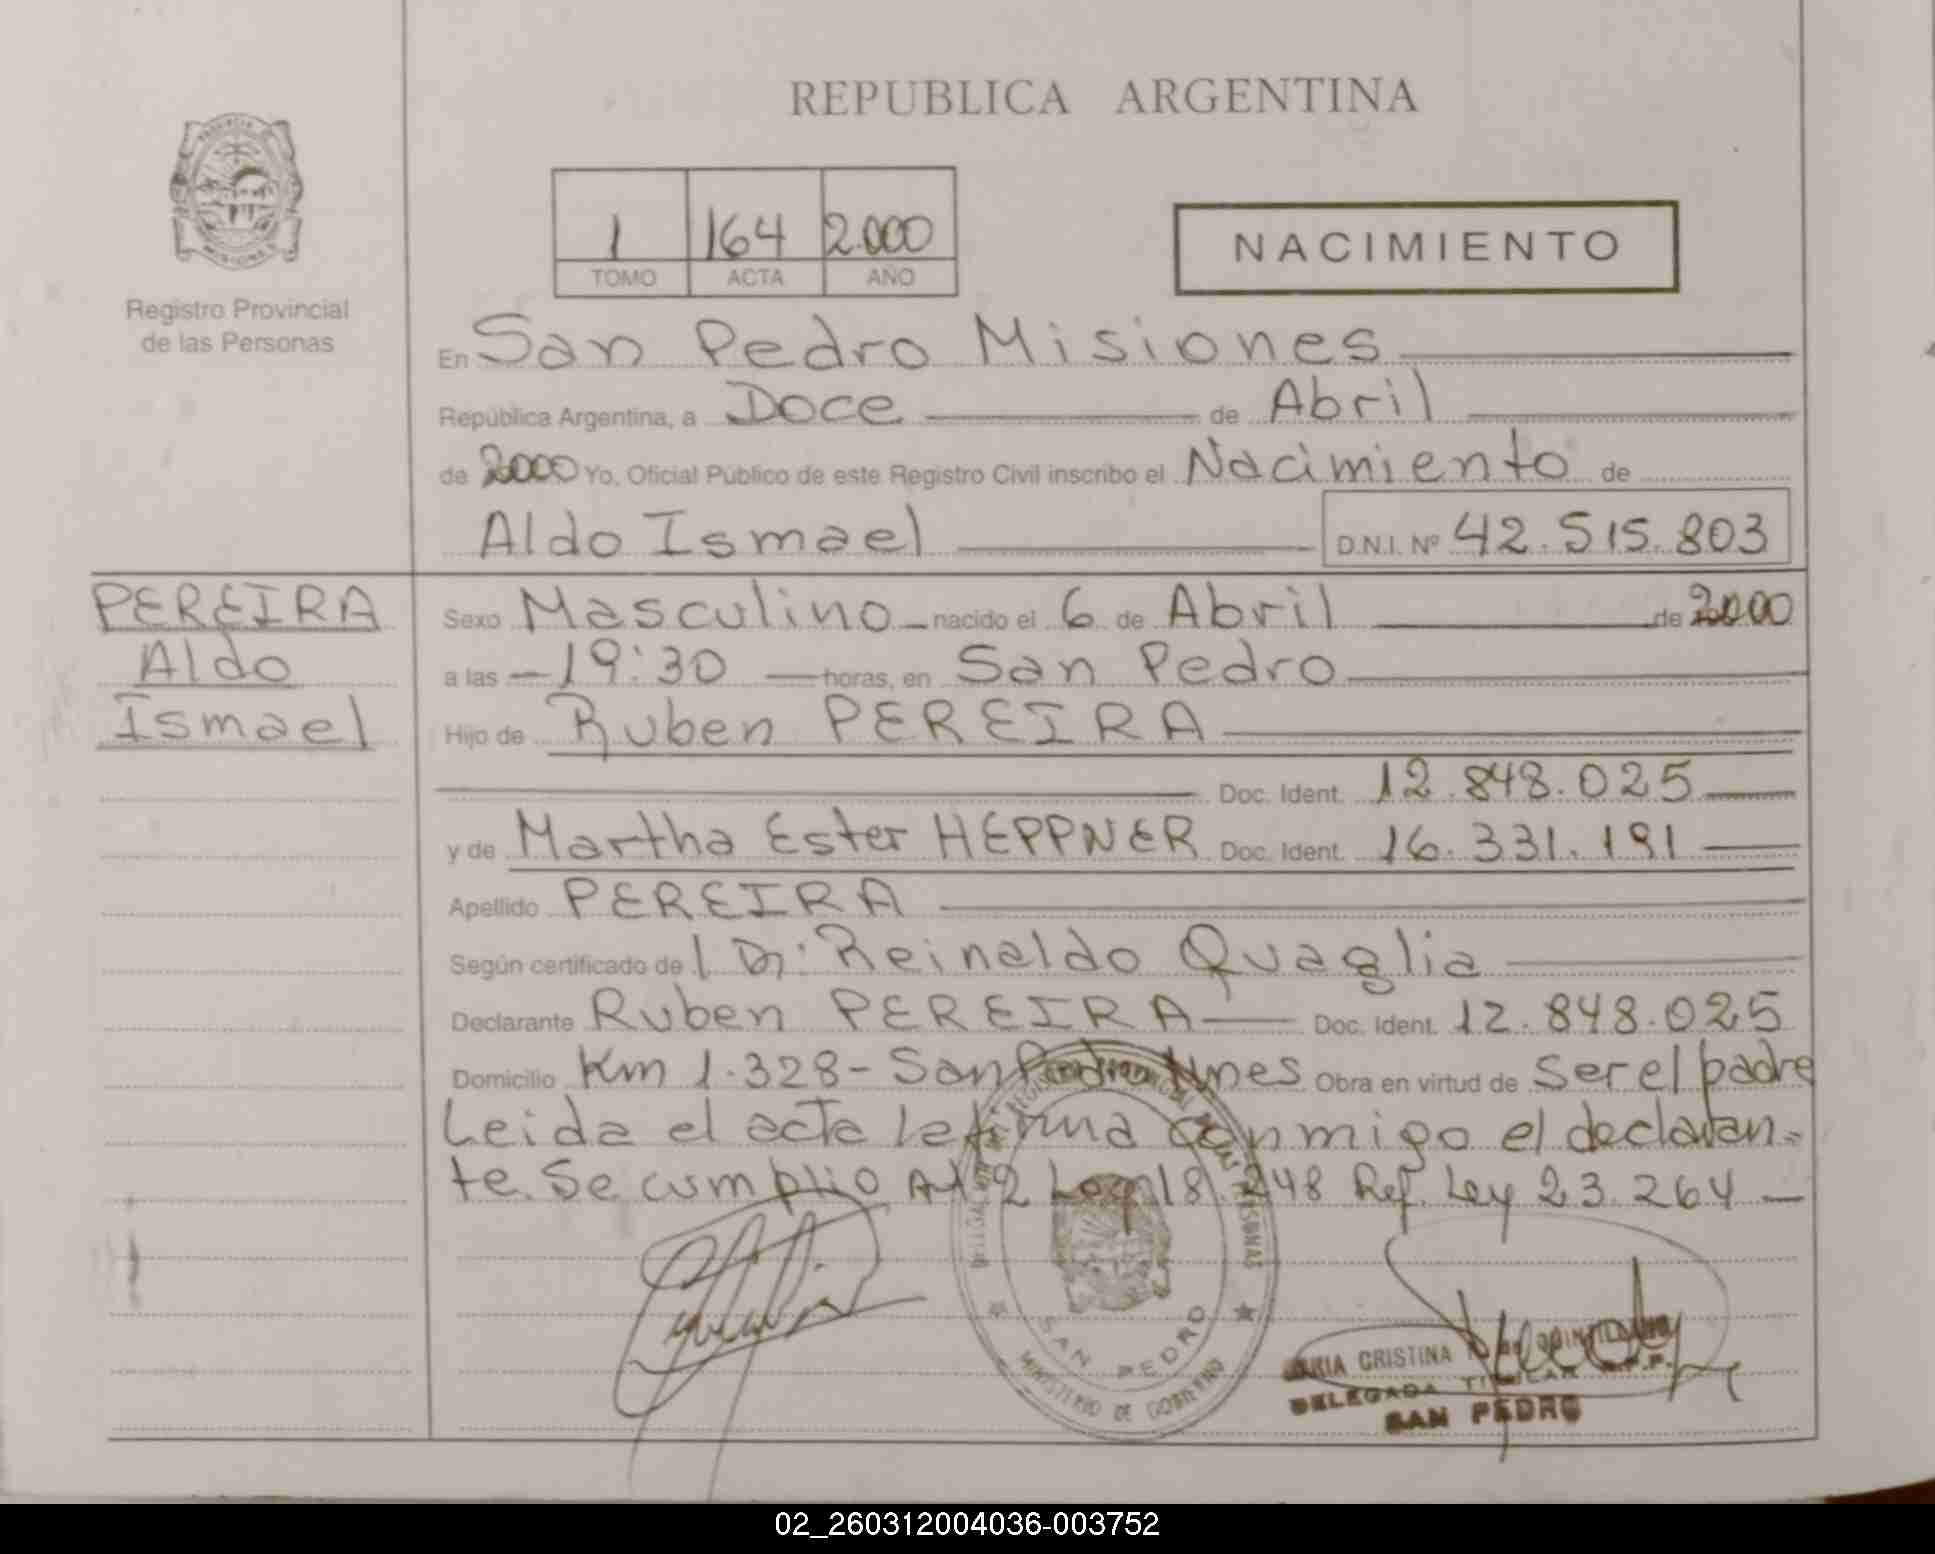 REPUBLICA ARGENTINA
1 164 2.000
TOMO ACTA AÑO
NACIMIENTO
Registro Provincial
de las Personas
En San Pedro Misiones
República Argentina, a Doce de Abril
de 2000 Yo, Oficial Público de este Registro Civil inscribo el Nacimiento de
Aldo Ismael D.N.I. Nº 42.515.803
PEREIRA
Aldo
Ismael
Sexo Masculino nacido el 6 de Abril de 2000
a las 19:30 horas, en San Pedro
Hijo de Ruben PEREIRA
Doc. Ident. 12.848.025
y de Martha Ester HEPPNER Doc. Ident. 16.331.191
Apellido PEREIRA
Según certificado de l Dr: Reinaldo Quaglia
Declarante Ruben PEREIRA Doc. Ident. 12.848.025
Domicilio Km 1.328- San Pedro Mnes Obra en virtud de Ser el padre
Leida el acta la firma conmigo el declaran-
te. Se cumplio Art 2 Ley 18.248 Ref. Ley 23.264
SAN PEDRO
MINISTERIO DE GOBIERNO
CRISTINA
DELEGADA TITULAR R.P.P.
SAN PEDRO
02_260312004036-003752